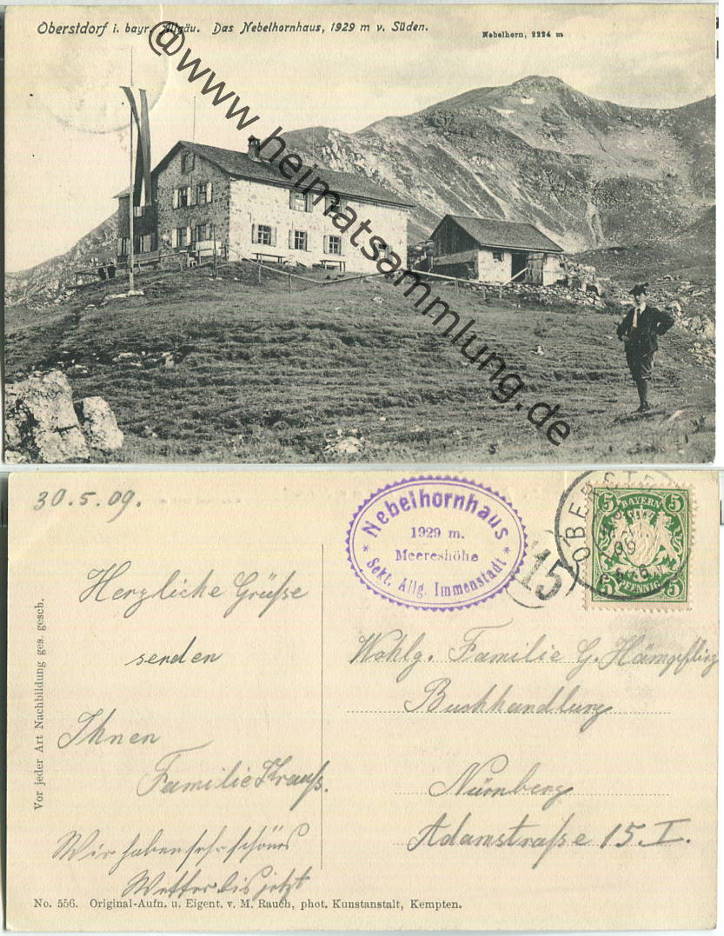 Oberstdorf i. bayr. Allgäu. Das Nebelhornhaus, 1929 m v. Süden.
Nebelhorn, 2224 m
@www.heimatsammlung.de
30.5.09.
Nebelhornhaus
1929 m.
Meereshöhe
* Sekt. Allg. Immenstadt *
15
BAYERN
5 5
5 5
PFENNIG
Herzliche Grüße
senden
Ihnen
Familie Krauß.
Wir haben sehr schönes
Wetter bis jetzt
Wohlg. Familie G. Hämpfling
Buchhandlung
Nürnberg
Adamstraße 15 I.
Vor jeder Art Nachbildung ges. gesch.
No. 556. Original-Aufn. u. Eigent. v. M. Rauch, phot. Kunstanstalt, Kempten.